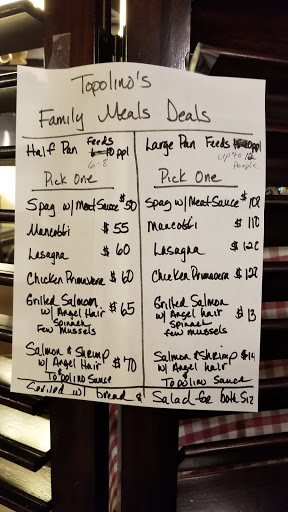 Topolino's
Family Meals Deals
Half Pan Feeds ppl
6-8
Pick One
Spag w/ Meat Sauce $50
Manicotti $55
Lasagna $60
Chicken Primavera $60
Grilled Salmon $65
w/ Angel Hair
Spinach
Few Mussels
Salmon & Shrimp $70
w/ Angel Hair
Topolino Sauce
Large Pan Feeds ppl
up to 12
people
Pick One
Spag w/ Meat Sauce $10
Manicotti $11
Lasagna $12
Chicken Primavera $12
Grilled Salmon $13
w/ Angel Hair
Spinach
Few Mussels
Salmon & Shrimp $14
w/ Angel hair
Topolino Sauce
w/ bread & Salad for both Siz